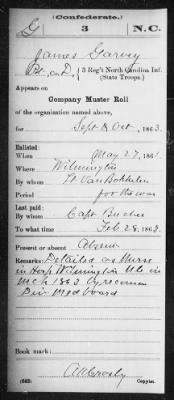 (Confederate.)
G 3 N.C.
James Garvey
Pvt, Co. D, 3 Reg't North Carolina Inf.
(State Troops.)
Appears on
Company Muster Roll
of the organization named above,
for Sept & Oct, 1863.
Enlisted:
When May 27, 1861.
Where Wilmington
By whom
Period for the war
Last paid:
By whom Capt
To what time Feb 28, 1863.
Present or absent Absent
Remarks: Detailed as Nurse
in Hosp Wilmington N.C. in
Mch 1863 by recom
Med board
Book mark:
(642) A W Crosby
Copyist.